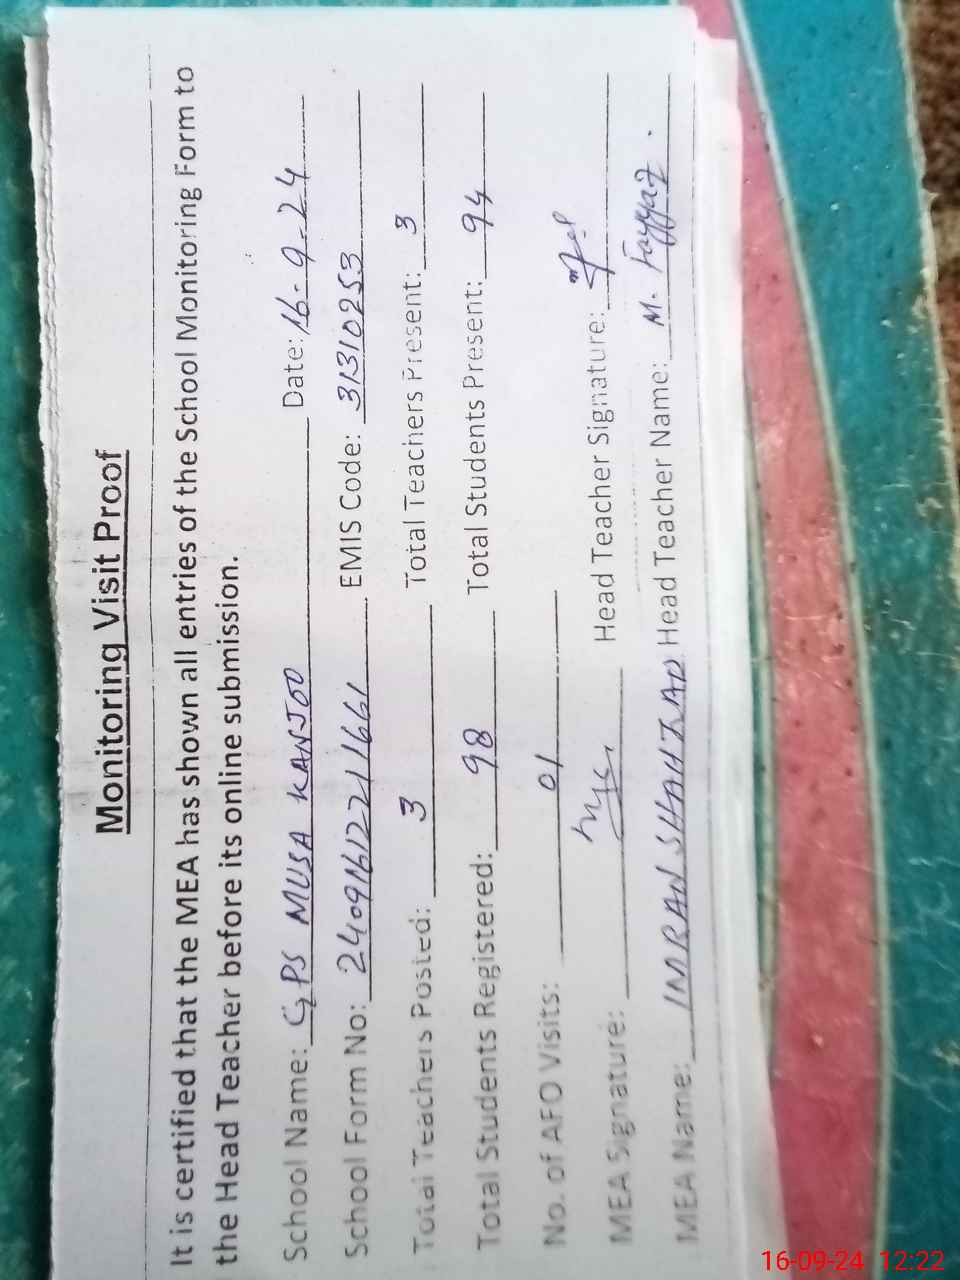 Monitoring Visit Proof
It is certified that the MEA has shown all entries of the School Monitoring Form to
the Head Teacher before its online submission.
School Name: GPS MUSA KANJOO Date: 16-9-24
School Form No: 2409161221661 EMIS Code: 31310253
Total Teachers Posted: 3 Total Teachers Present: 3
Total Students Registered: 98 Total Students Present: 94
No. of AFO Visits: 01
MEA Signature: Head Teacher Signature:
MEA Name: IMRAN SHAHZAD Head Teacher Name: M. Fayyaz.
16-09-24 12:22